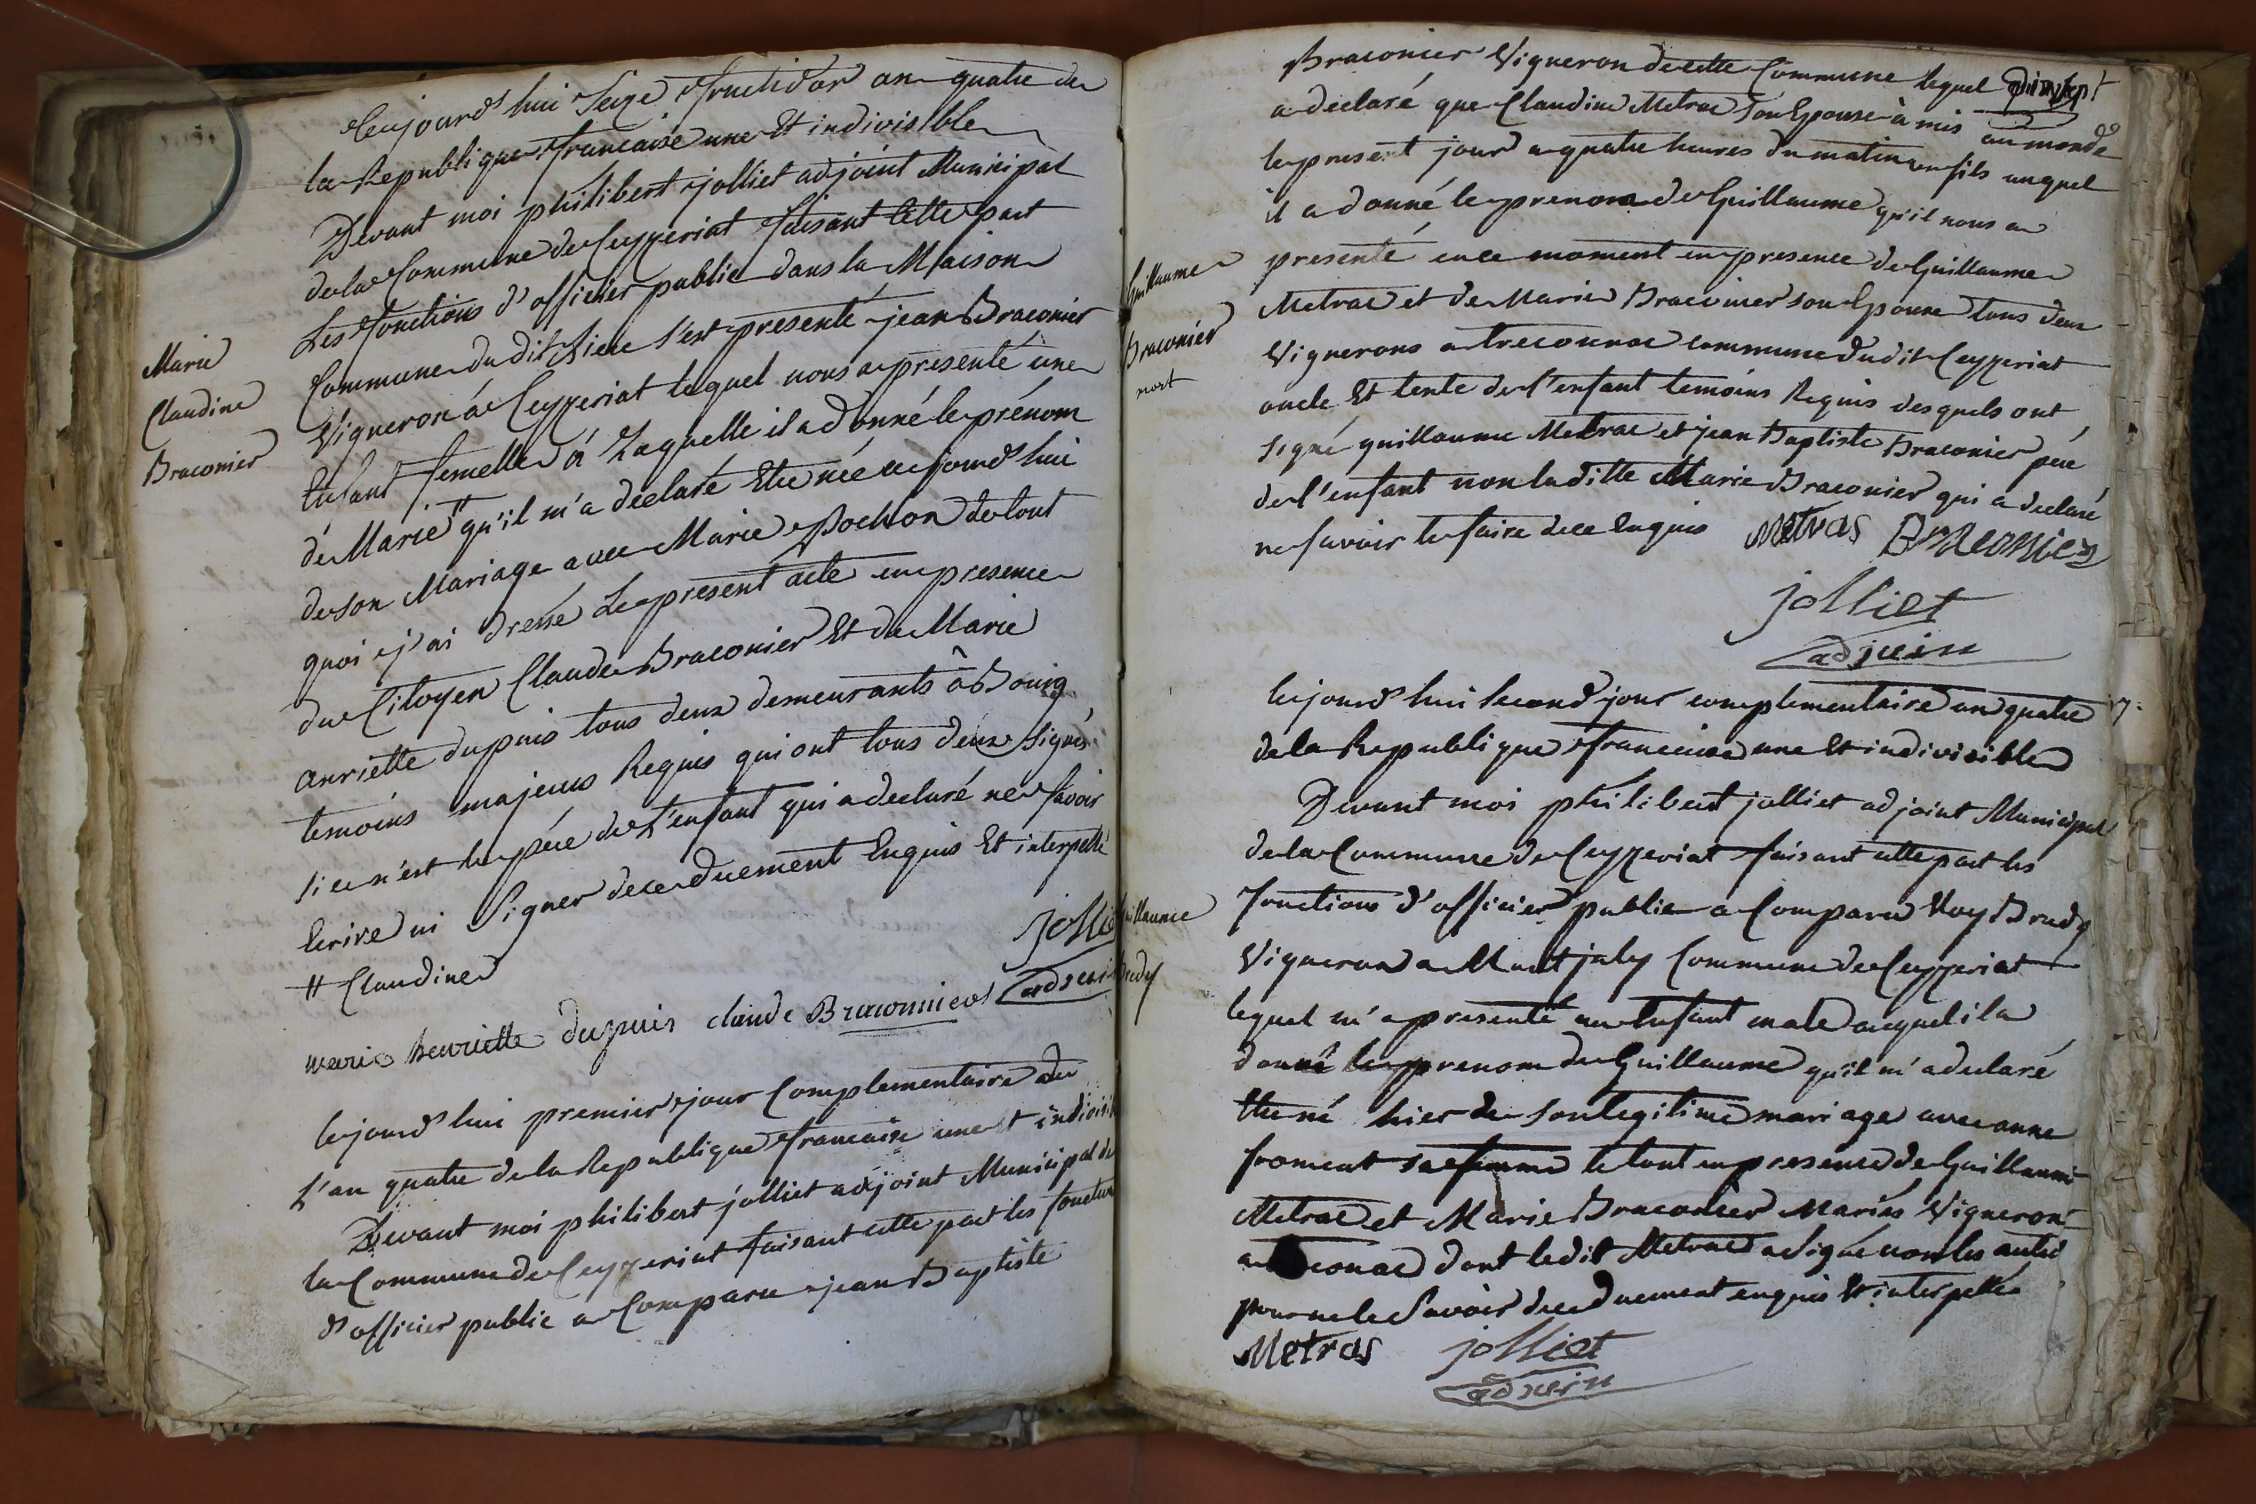 Cejourd'hui Seize fructidor an quatre de
la Republique francaise une Et indivisible
Devant moi philibert jolliet adjoint Municipal
de la Commune de Ceyzeriat faisant Cette part
Les fonctions d'officier public dans la Maison
Commune du dit Lieu s'est presenté jean Braconier
Vigneron á Ceyzeriat lequel nous a presenté une
Enfant femelle á Laquelle il a donné le prénom
de Marie # qu'il m'a déclaré Etre née cejourd'hui
de son Mariage avec Marie Pochon de tout
quoi j'ai dressé Le present acte en presence
du Citoyen Claude Braconier Et de Marie
anriette dupuis tous deux demeurants à Bourg
temoins majeurs Requis qui ont tous deux Signés
si ce n'est le pére de L'enfant qui a declaré ne Savoir
Ecrire ni Signer de ce duement Enquis Et interpellé
# Claudine
jolliet
adjoin
marie henriette dupuis claude Braconnier
Marie
Claudine
Braconier
Cejourd'hui premier jour Complementaire de
L'an quatre de la Republique francaise une et indivisib
Devant moi philibert jolliet adjoint Municipal de
la Commune de Ceyzeriat faisant cette part les fonctions
d'officier public a Comparu jean Baptiste
Braconier Vigneron de cette Commune lequel
a declaré que Claudine Metras Son Epouse à mis au monde
le present jour a quatre heures du matin un fils auquel
il a donné le prenom de Guillaume qu'il nous a
presenté en ce moment en presence de Guillaume
Metras et de Marie Braconier son Epouse tous deux
Vignerons a treconnac commune dudit Ceyzeriat
oncle Et tente de l'enfant temoins Requis desquels ont
signé guillaume Metras et jean Baptiste Braconier pére
de l'enfant non laditte Marie Braconier qui a declaré
ne savoir le faire de ce Enquis Metras Braconier
jolliet
adjoin
Guillaume
Braconier
mort
Cejourd'hui second jour complementaire an quatre
de la Republique francaise une Et indivisible
Devant moi philibert jolliet adjoint Municipal
de la Commune de Ceyzeriat faisant cette part les
fonctions d'officier public a Comparu Roy Brudy
Vigneron a Montjuly Commune de Ceyzeriat
lequel m'a presenté un Enfant male auquel il a
donné le prenom de Guillaume qu'il m'a declaré
Etre né hier de son legitime mariage avec anne
froment sa femme le tout en presence de Guillaume
Metras et Marie Braconier Mariés Vignerons
a conac dont ledit Metras a Signé non les autres
pour ne le Savoir de ce duement enquis Et interpellés
Metras jolliet
adjoin
Guillaume
Brudy